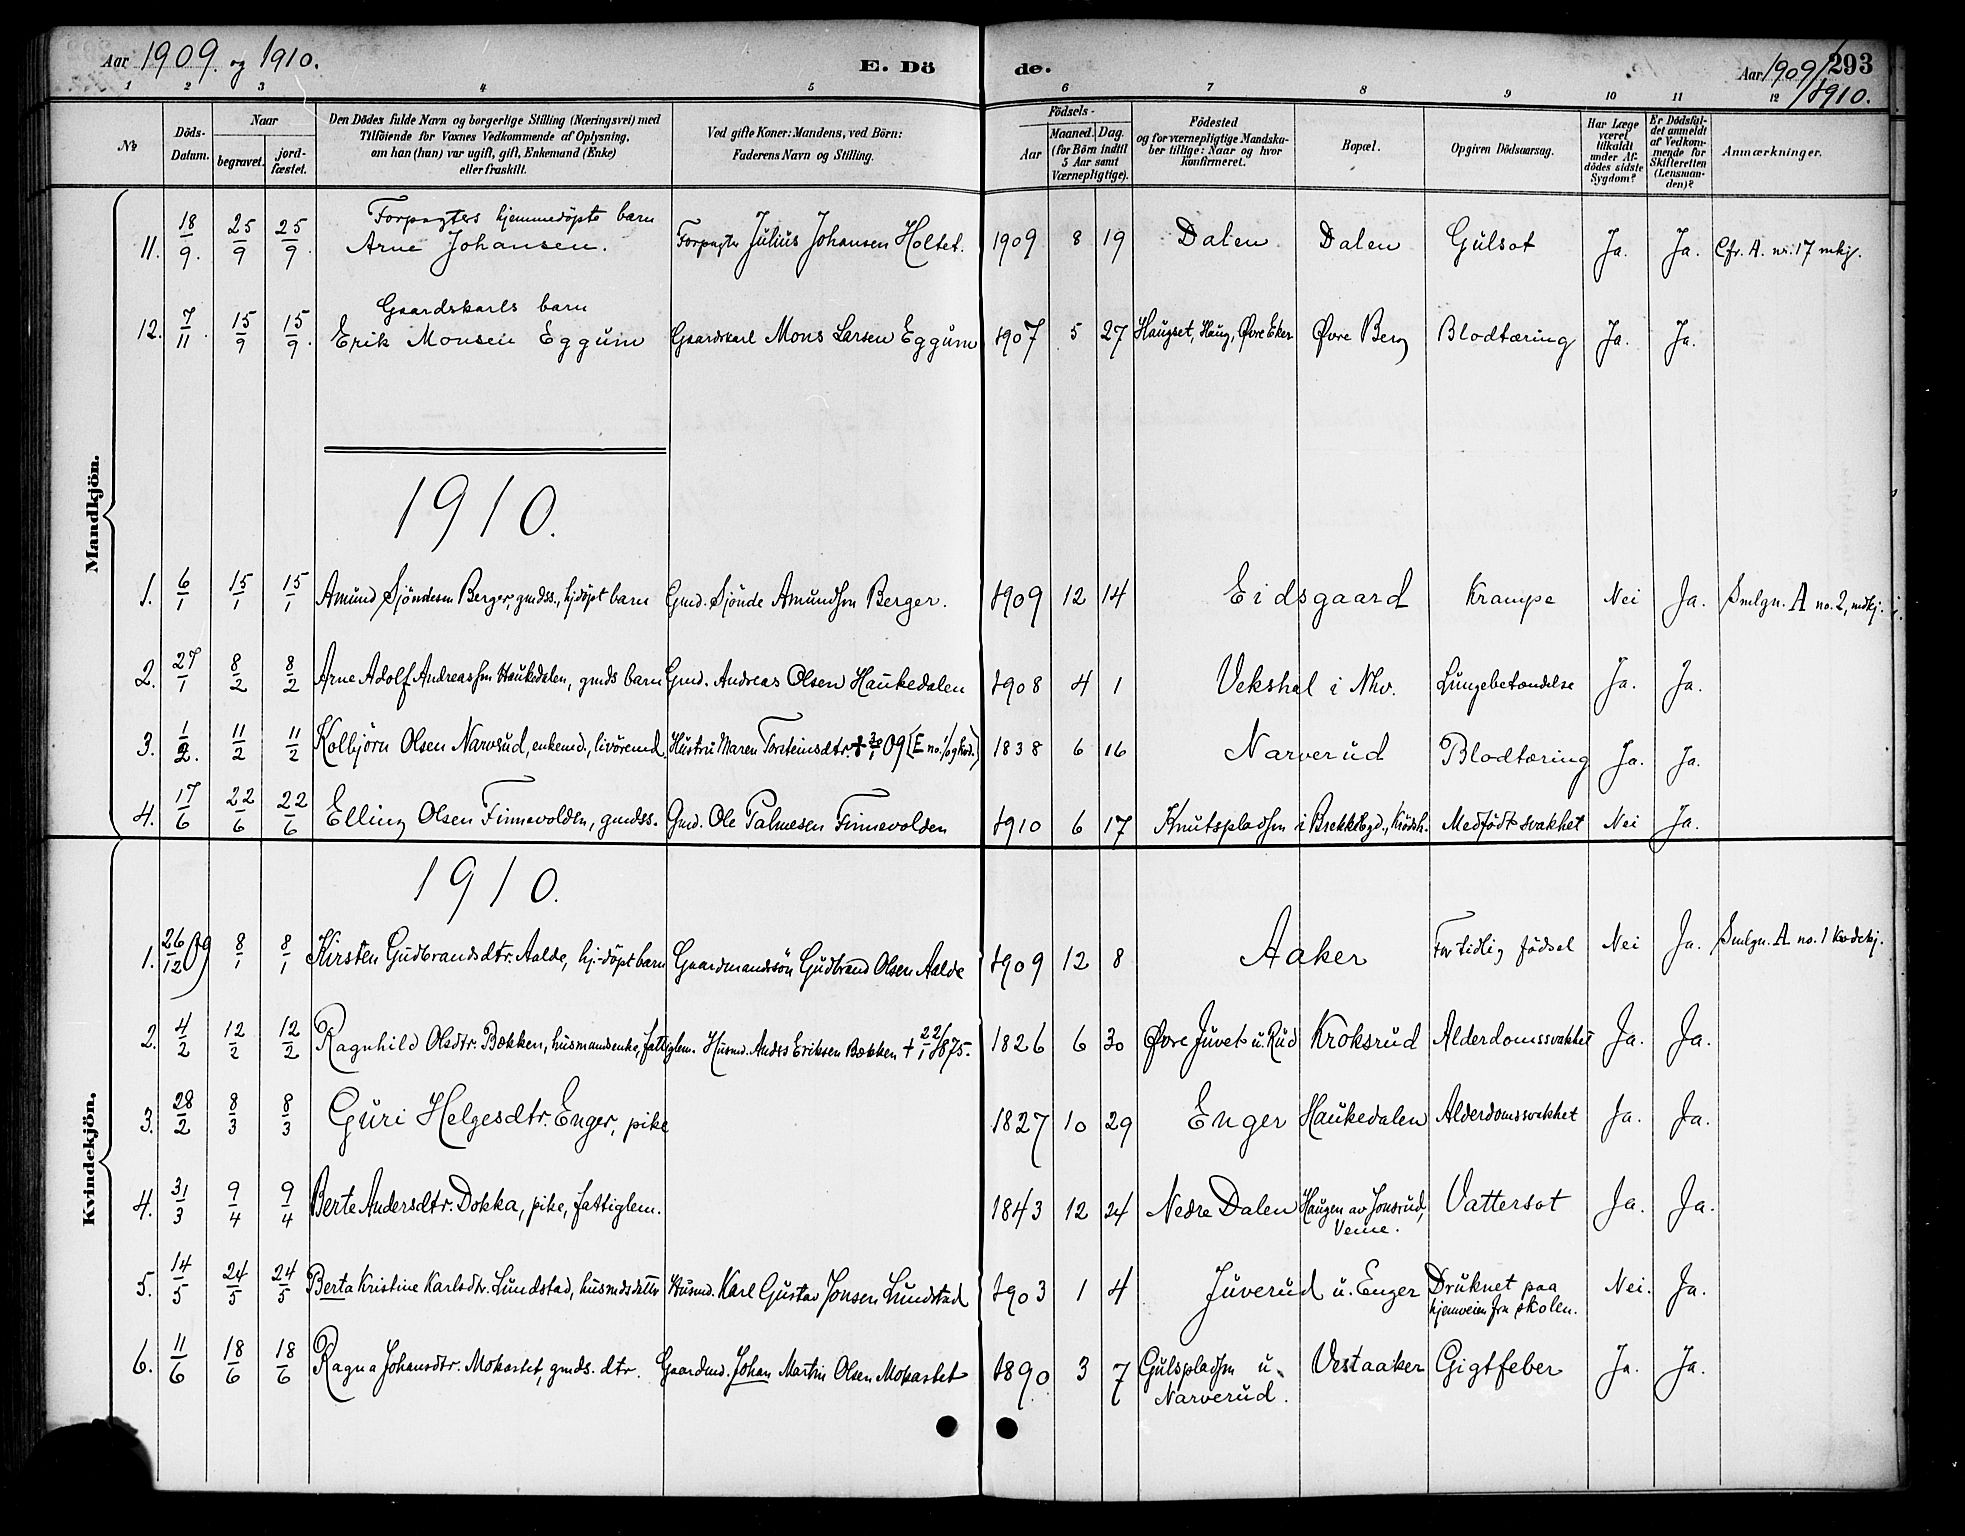 Aar 1909. og 1910.
E. Dö
de.
Aar 1909/1910.
293
1 2 3 4 5 6 7 8 9 10 11 12
No
Döds-Datum.
Naar
begravet.
jord-fæstet.
Den Dödes fulde Navn og borgerlige Stilling (Næringsvei) med
Tilföiende for Voxnes Vedkommende af Oplysning,
om han (hun) var ugift, gift, Enkemand (Enke)
eller fraskilt.
Ved gifte Koner: Mandens, ved Börn:
Faderens Navn og Stilling.
Födsels-
Aar
Maaned. Dag.
(for Börn indtil
5 Aar samt
Værnepligtige).
Födested
og for værnepligtige Mandska-
ber tillige: Naar og hvor
konfirmeret.
Bopæl.
Opgiven Dödsaarsag.
Har Læge
været
tilkaldt
under Af-
dödes sidste
Sygdom?
Er Dödsfal-
det anmeldt
af Vedkom-
mende for
Skifteretten
(Lensman-
den)?
Anmærkninger.
Mandkjön.
11. 18/9. 25/9 25/9. Forpagters hjemmedöpte barn
Arne Johansen. Forpagter Julius Johansen Holtet. 1909 8 19 Dalen Dalen Gulsot Ja. Ja. Cfr. A. nr. 17 mkj.
12. 7/11. 15/9 15/9. Gaardskarls barn
Erik Monsen Eggum Gaardskarl Mons Larsen Eggum 1907 5 27 Haugset, Haug, Øvre Eker Øvre Berg Blodtæring Ja. Ja.
1910.
1. 6/1 15/1 15/1 Amund Sjöndesen Berger, gmdss., hjdöpt barn Gmd. Sjönde Amundsen Berger. 1909 12 14 Eidsgaard Krampe Nei Ja. Smlgn. A no. 2, mdkj.
2. 27/1 8/2 8/2 Arne Adolf Andreassen Haukedalen, gmds barn Gmd. Andreas Olsen Haukedalen 1908 4 1 Vekshal i Nhv. Lungebetændelse Ja. Ja.
3. 1/2. 11/2 11/2 Kolbjörn Olsen Narvrud, enkemd., livöremd. Hustru Maren Torsteinsdtr. 1838 6 16 Narverud Blodtæring Ja. Ja.
4. 17/6 22/6 22/6 Elling Olsen Finnevolden, gmdss. Gmd. Ole Palmesen Finnevolden 1910 6 17 Knutspladsen i Brekkbygd., Krödsh. Medfödt svakhet Nei Ja.
Kvindekjön.
1910.
1. 26/12 09 8/1 8/1 Kirsten Gudbrandsdtr. Aalde, hj.-döpt barn Gaardmandssön Gudbrand Olsen Aalde 1909 12 8 Aaker For tidlig födsel Nei Ja. Smlgn. A no. 1 kvdekj.
2. 4/2 12/2 12/2 Ragnhild Olsdtr. Bækken, husmandsenke, fattiglem. Husmd. Anders Eriksen Bækken + 22/1 1875. 1826 6 30 Øvre Juvet u. Rud Kroksrud Alderdomssvakhet Ja. Ja.
3. 28/2 8/3 8/3 Guri Helgesdtr. Enger, pike 1827 10 29 Enger Haukedalen Alderdomssvakhet Ja. Ja.
4. 31/3 9/4 9/4 Berte Andersdtr. Dokka, pike, fattiglem. 1843 12 24 Nedre Dalen Haugen av Jonsrud, Veme. Vattersot Ja. Ja.
5. 14/5 24/5 24/5 Berta Kristine Karlsdtr. Lundstad, husmdsdatter Husmd. Karl Gustav Jonsen Lundstad 1903 1 4 Juverud u. Enger Druknet paa
hjemveien fra skolen. Nei. Ja.
6. 11/6 18/6 18/6 Ragna Johansdtr. Mokastet, gmds. dtr. Gaardmd. Johan Martin Olsen Mokastet 1890 3 7 Gulspladsen u.
Narverud. Vestaaker Gigtfeber Ja. Ja.